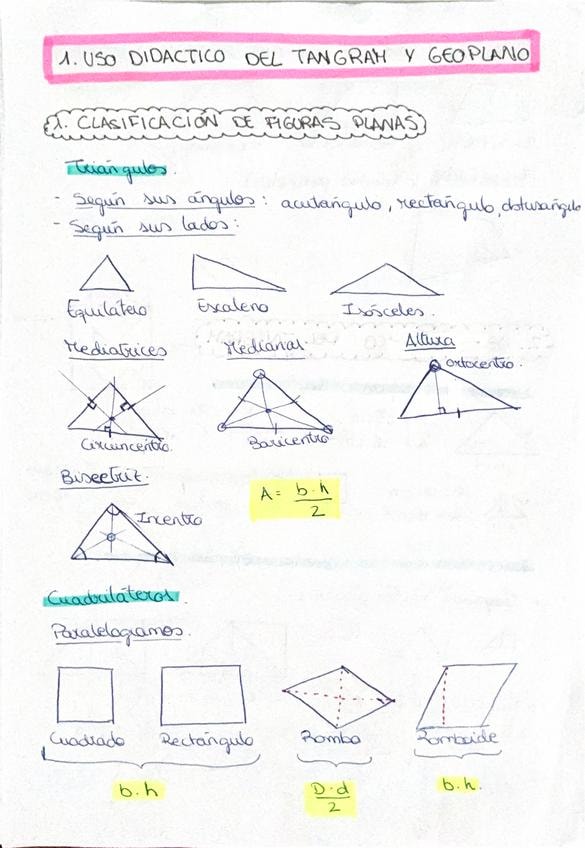 1. USO DIDACTICO DEL TANGRAM Y GEOPLANO
1. CLASIFICACIÓN DE FIGURAS PLANAS
Triángulos.
- Según sus ángulos: acutángulo, rectángulo, obtusángulo
- Según sus lados:
Equilátero Escaleno Isósceles.
Mediatrices Medianas. Altura
ortocentro.
Circuncentro. Baricentro
Bisectriz.
A = b·h / 2
Incentro
Cuadriláteros.
Paralelogramos.
Cuadrado Rectángulo Rombo Romboide
b.h D·d / 2 b.h.